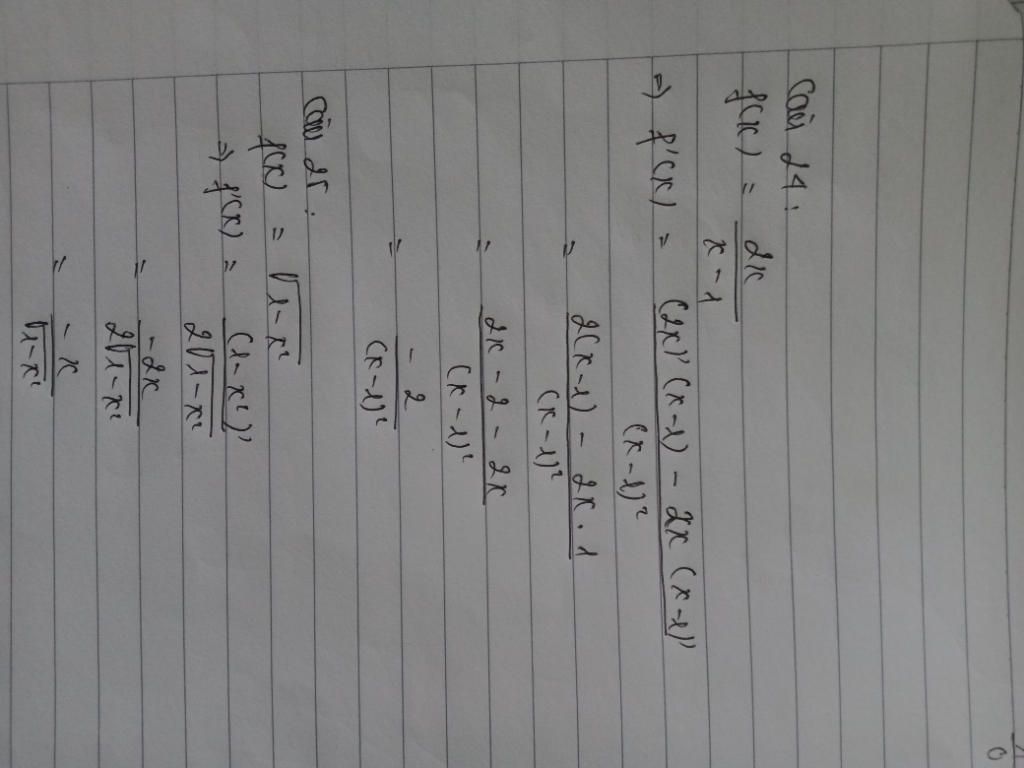 Câu 24:
f(x) = 2x / x - 1
=> f'(x) = (2x)' (x-1) - 2x (x-1)' / (x-1)²
= 2(x-1) - 2x . 1 / (x-1)²
= 2x - 2 - 2x / (x-1)²
= -2 / (x-1)²
Câu 25:
f(x) = √1-x²
=> f'(x) = (1-x²)' / 2√1-x²
= -2x / 2√1-x²
= -x / √1-x²